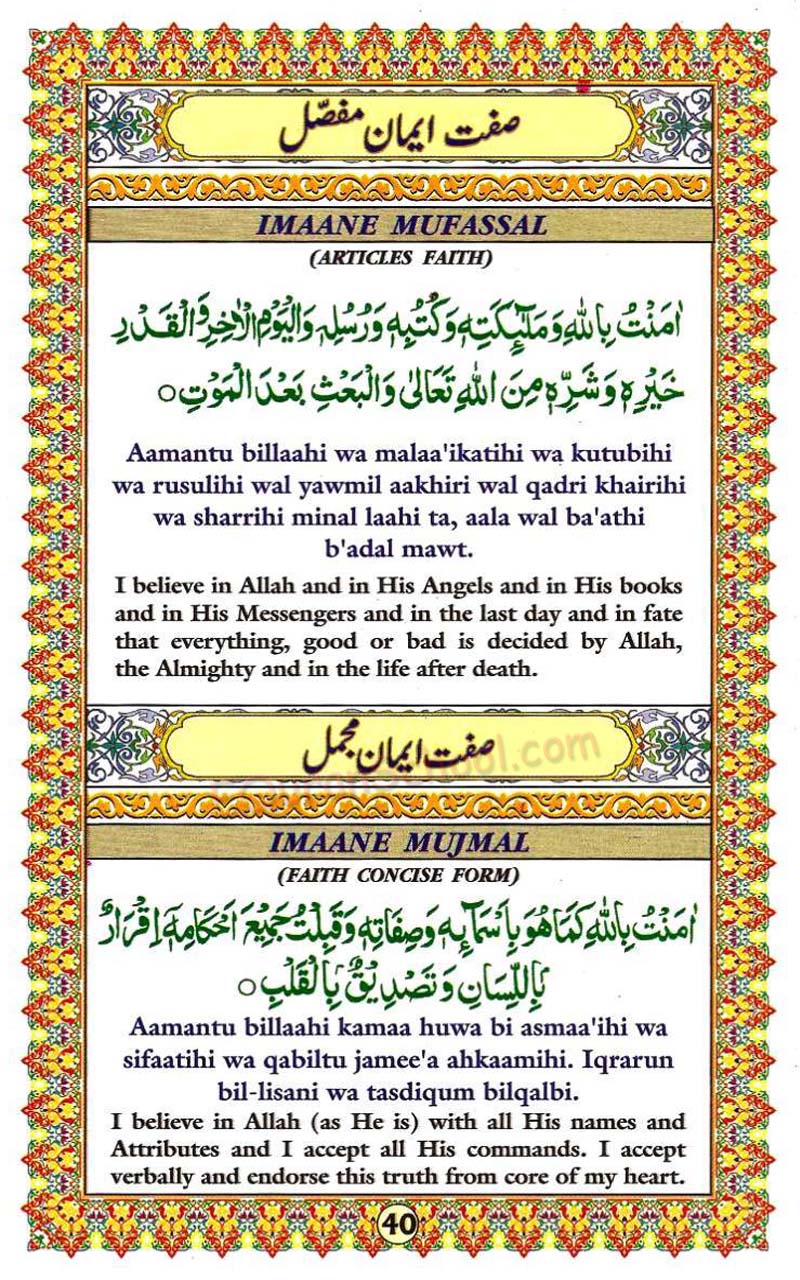 صفت ایمان مفصّل
IMAANE MUFASSAL
(ARTICLES FAITH)
اٰمَنْتُ بِاللّٰهِ وَمَلٰٓئِكَتِهٖ وَكُتُبِهٖ وَرُسُلِهٖ وَالْيَوْمِ الْاٰخِرِ وَالْقَدْرِ
خَيْرِهٖ وَشَرِّهٖ مِنَ اللّٰهِ تَعَالٰى وَالْبَعْثِ بَعْدَ الْمَوْتِ ○
Aamantu billaahi wa malaa'ikatihi wa kutubihi
wa rusulihi wal yawmil aakhiri wal qadri khairihi
wa sharrihi minal laahi ta, aala wal ba'athi
b'adal mawt.
I believe in Allah and in His Angels and in His books
and in His Messengers and in the last day and in fate
that everything, good or bad is decided by Allah,
the Almighty and in the life after death.
صفت ایمان مجمل
IMAANE MUJMAL
(FAITH CONCISE FORM)
اٰمَنْتُ بِاللّٰهِ كَمَا هُوَ بِاَسْمَآئِهٖ وَصِفَاتِهٖ وَقَبِلْتُ جَمِيْعَ اَحْكَامِهٖٓ اِقْرَارٌ
بِاللِّسَانِ وَتَصْدِيْقٌ بِالْقَلْبِ ○
Aamantu billaahi kamaa huwa bi asmaa'ihi wa
sifaatihi wa qabiltu jamee'a ahkaamihi. Iqrarun
bil-lisani wa tasdiqum bilqalbi.
I believe in Allah (as He is) with all His names and
Attributes and I accept all His commands. I accept
verbally and endorse this truth from core of my heart.
40